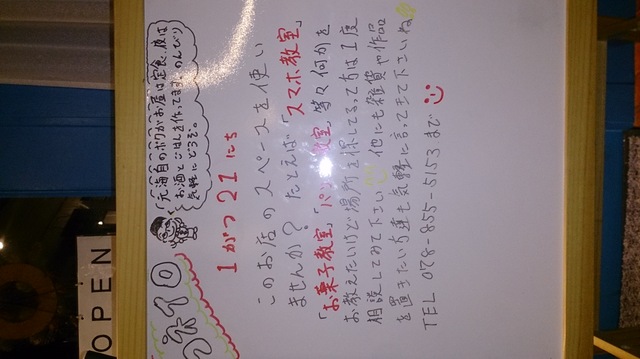 ネイロ
「元海自のボクがお昼は定食、夜は
お酒とごはんを作ってます。のんびり
気軽にどうぞ。
1がつ21にち
このお店のスペースを使い
ませんか？ たとえば「スマホ教室」
「お菓子教室」「パン教室」等々何かを
お教えたいけど場所を探してるって方は1度
相談してみて下さい 他にも雑貨や作品
を置きたい方達も気軽に言ってきて下さいね
TEL 078-855-5153 まで
OPEN